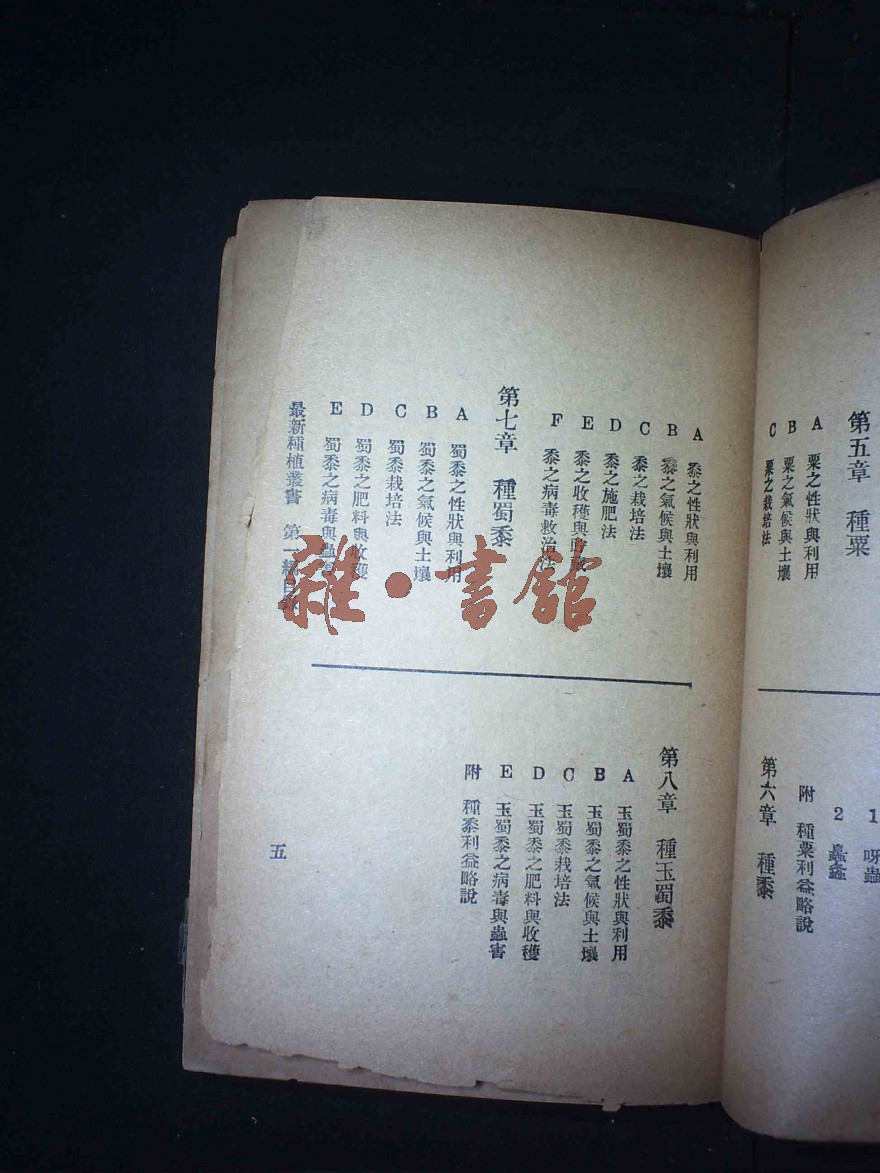 第五章　種粟
A　粟之性狀與利用
B　粟之氣候與土壤
C　粟之栽培法
1　呀蟲
2　螽
附　種粟利益略說
第六章　種黍
A　黍之性狀與利用
B　黍之氣候與土壤
C　黍之栽培法
D　黍之施肥法
E　黍之收穫與
F　黍之病毒救治法
第七章　種蜀黍
A　蜀黍之性狀與利用
B　蜀黍之氣候與土壤
C　蜀黍栽培法
D　蜀黍之肥料與收穫
E　蜀黍之病毒與蟲害
第八章　種玉蜀黍
A　玉蜀黍之性狀與利用
B　玉蜀黍之氣候與土壤
C　玉蜀黍栽培法
D　玉蜀黍之肥料與收穫
E　玉蜀黍之病毒與蟲害
附　種黍利益略說
最新種植叢書　第一編目錄
五
雜·書館